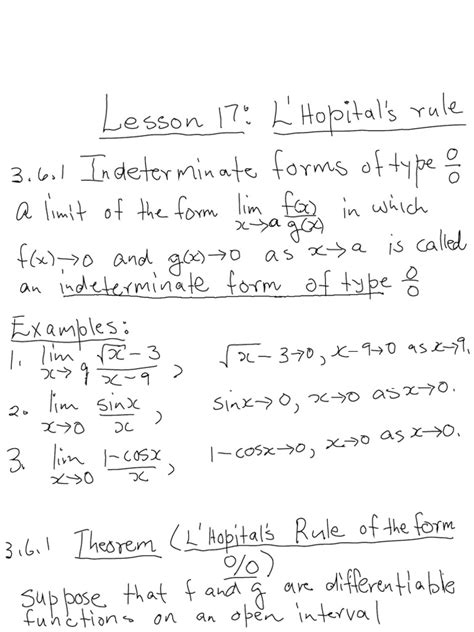 Lesson 17: L'Hopital's rule
3.6.1 Indeterminate forms of type 0/0
a limit of the form lim x→a f(x)/g(x) in which
f(x)→0 and g(x)→0 as x→a is called
an indeterminate form of type 0/0
Examples:
1. lim x→9 (√x - 3)/(x - 9), √x - 3→0, x-9→0 as x→9.
2. lim x→0 sinx/x, sinx→0, x→0 as x→0.
3. lim x→0 (1-cosx)/x, 1-cosx→0, x→0 as x→0.
3.6.1 Theorem (L'Hopital's Rule of the form
0/0)
Suppose that f and g are differentiable
functions on an open interval